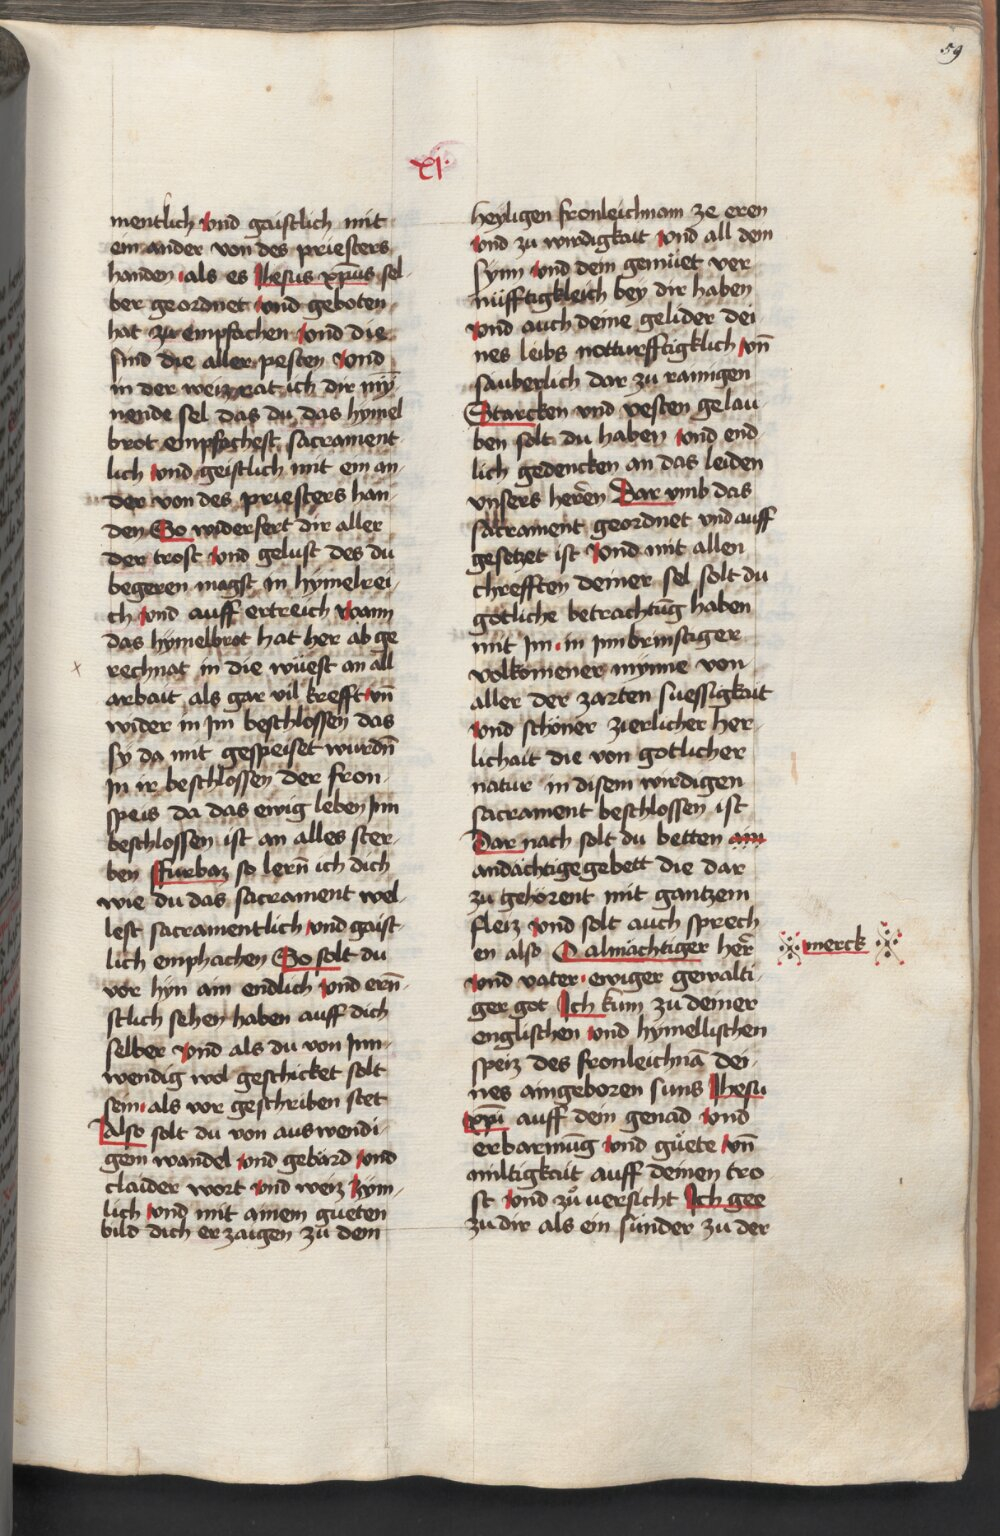 59
xj.
mentlich vnd gaistlich mit
ein ander von des priesters
handen als es Jhesus xp̄us sel-
ber geordnet vnd geboten
hat zu empfachen vnd die
sind die aller pesten vnd
in der weiz rat ich dir mȳ
nende sel das du das hymel
brot empfachest sacrament-
lich vnd geistlich mit ein an-
der von des priesters han-
den So widerfert dir aller
der trost vnd gelust des du
begeren magst in hymelrei-
ch vnd auff ertreich wann
das hymelbrot hat her ab ge
rechnat in die wüest an all
arbait als gar vil krefft vn̄
wider in Jm beschlossen das
sy da mit gespeiset wurdn̄
Jn ir beschlossen der fron-
speis da das ewig leben Jnn
beschlossen ist an alles ster-
ben Furbaz so lern̄ ich dich
wie du das sacrament wel-
lest sacramentlich vnd gaist-
lich emphachen So solt du
vor hyn ain endlich vnd ern̄-
stlich sehen haben auff dich
selber vnd als du von Jnn-
wendig wol geschicket solt
sein als vor geschriben stet
Also solt du von auswendi-
gem wandel vnd gebärd vnd
claider wort vnd weiz zym-
lich vnd mit ainem gueten
bild dich erzaigen zu dem
heyligen fronleichnam ze eren
vnd zu wirdigkait vnd all dem
synn vnd dem gemüet ver
nüfftigkleich bey dir haben
vnd auch deine gelider dei-
nes leibs notturfftigklich vn̄
säuberlich dar zu rainigen
Starcken vnd vesten gelau-
ben solt du haben vnd end
lich gedencken an das leiden
vnsers herēn Dar vmb das
sacrament geordnet vnd auff
gesetzet ist vnd mit allen
chrefften deiner sel solt du
götliche betrachtūg haben
mit Jm in Jnnbrinstiger
volkomener mynne von
aller der zarten suessigkait
vnd schöner zierlicher her-
lichait die von gotlicher
natur in disem wirdigen
sacrament beschlossen ist
Dar nach solt du betten ain
andächtige gebett die dar
zu gehörent mit gantzem
fleiz vnd solt auch sprech
en also O almächtiger her̄
merck
vnd vater ewiger gewalti-
ger got Jch kum zu deiner
englischen vnd hymellischen
speiz des fronleichnā dei-
nes aingeboren suns Jhesu
xp̄i auff dem genad vnd
erbarmūg vnd güete vn̄
miltigkait auff deinen tro
st vnd zů versicht Jch gee
zu dir als ein sünder zu der